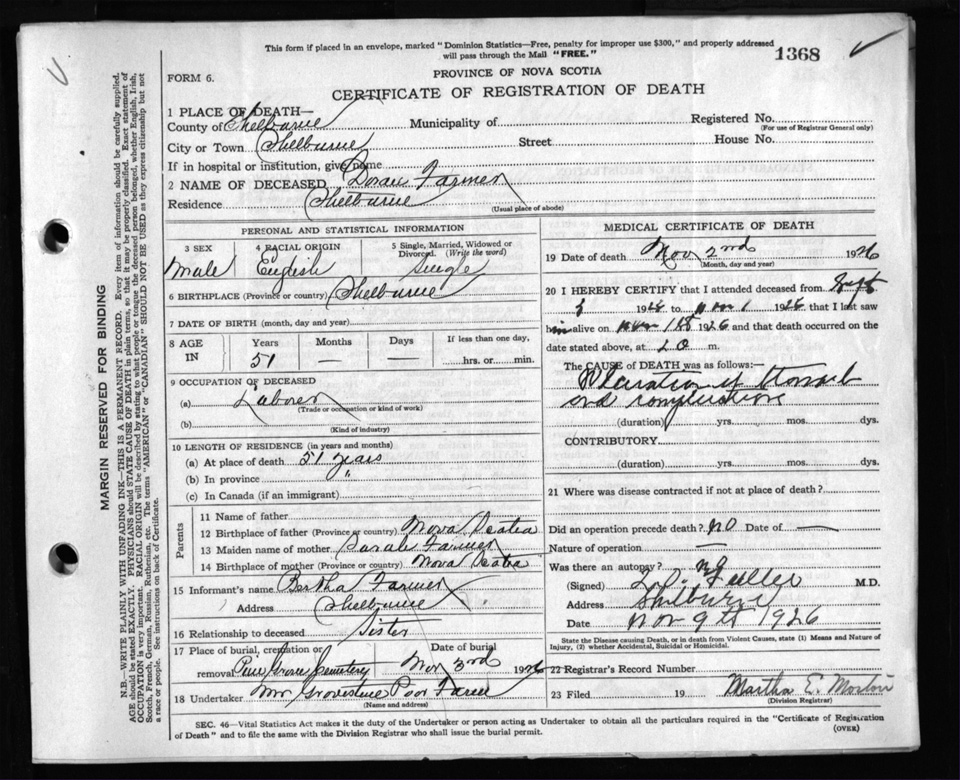 This form if placed in an envelope, marked "Dominion Statistics—Free, penalty for improper use $300," and properly addressed
will pass through the Mail "FREE."
1368
FORM 6.
PROVINCE OF NOVA SCOTIA
CERTIFICATE OF REGISTRATION OF DEATH
1 PLACE OF DEATH—
County of Shelburne Municipality of Registered No.
(For use of Registrar General only)
City or Town Shelburne Street House No.
If in hospital or institution, give name
2 NAME OF DECEASED Doran Farmer
Residence Shelburne
(Usual place of abode)
PERSONAL AND STATISTICAL INFORMATION
3 SEX 4 RACIAL ORIGIN 5 Single, Married, Widowed or
Divorced. (Write the word)
Male English Single
6 BIRTHPLACE (Province or country) Shelburne
7 DATE OF BIRTH (month, day and year)
8 AGE IN Years Months Days If less than one day,
51 — — hrs. or min.
9 OCCUPATION OF DECEASED
(a) Laborer
(Trade or occupation or kind of work)
(b)
(Kind of industry)
10 LENGTH OF RESIDENCE (in years and months)
(a) At place of death 51 years
(b) In province "
(c) In Canada (if an immigrant)
Parents
11 Name of father
12 Birthplace of father (Province or country) Nova Scotia
13 Maiden name of mother Sarah Farmer
14 Birthplace of mother (Province or country) Nova Scotia
15 Informant's name Bertha Farmer
Address Shelburne
16 Relationship to deceased Sister
17 Place of burial, cremation or Date of burial
removal Pine Grove Cemetery Nov 3rd 1926
18 Undertaker Mr Poor Farm
(Name and address)
MEDICAL CERTIFICATE OF DEATH
19 Date of death Nov 2nd 1926
(Month, day and year)
20 I HEREBY CERTIFY that I attended deceased from Sept
1926 to Nov 1 1926 that I last saw
him alive on Nov 1st 1926 and that death occurred on the
date stated above, at m.
The CAUSE of DEATH was as follows:—
Ulceration of Stomach
and
(duration) yrs. mos. dys.
CONTRIBUTORY
(duration) yrs. mos. dys.
21 Where was disease contracted if not at place of death?
Did an operation precede death? NO Date of —
Nature of operation —
Was there an autopsy? no
(Signed) Fuller M.D.
Address Shelburne
Date Nov 9th 1926
State the Disease causing Death, or in death from Violent Causes, state (1) Means and Nature of
Injury, (2) whether Accidental, Suicidal or Homicidal.
22 Registrar's Record Number
23 Filed 19 Martha E. Morton
(Division Registrar)
SEC. 46—Vital Statistics Act makes it the duty of the Undertaker or person acting as Undertaker to obtain all the particulars required in the "Certificate of Registration
of Death" and to file the same with the Division Registrar who shall issue the burial permit.
(OVER)
MARGIN RESERVED FOR BINDING
N.B.—WRITE PLAINLY WITH UNFADING INK—THIS IS A PERMANENT RECORD. Every item of information should be carefully supplied.
AGE should be stated EXACTLY. PHYSICIANS should STATE CAUSE OF DEATH in plain terms, so that it may be properly classified. Exact statement of
OCCUPATION is very important. RACIAL ORIGIN will be described by stating to what people or tongue the deceased person belonged, whether English, Irish,
Scotch, French, German, Russian, Ruthenian, etc. The terms "AMERICAN" or "CANADIAN" SHOULD NOT BE USED as they express citizenship but not
a race or people. See instructions on back of Certificate.